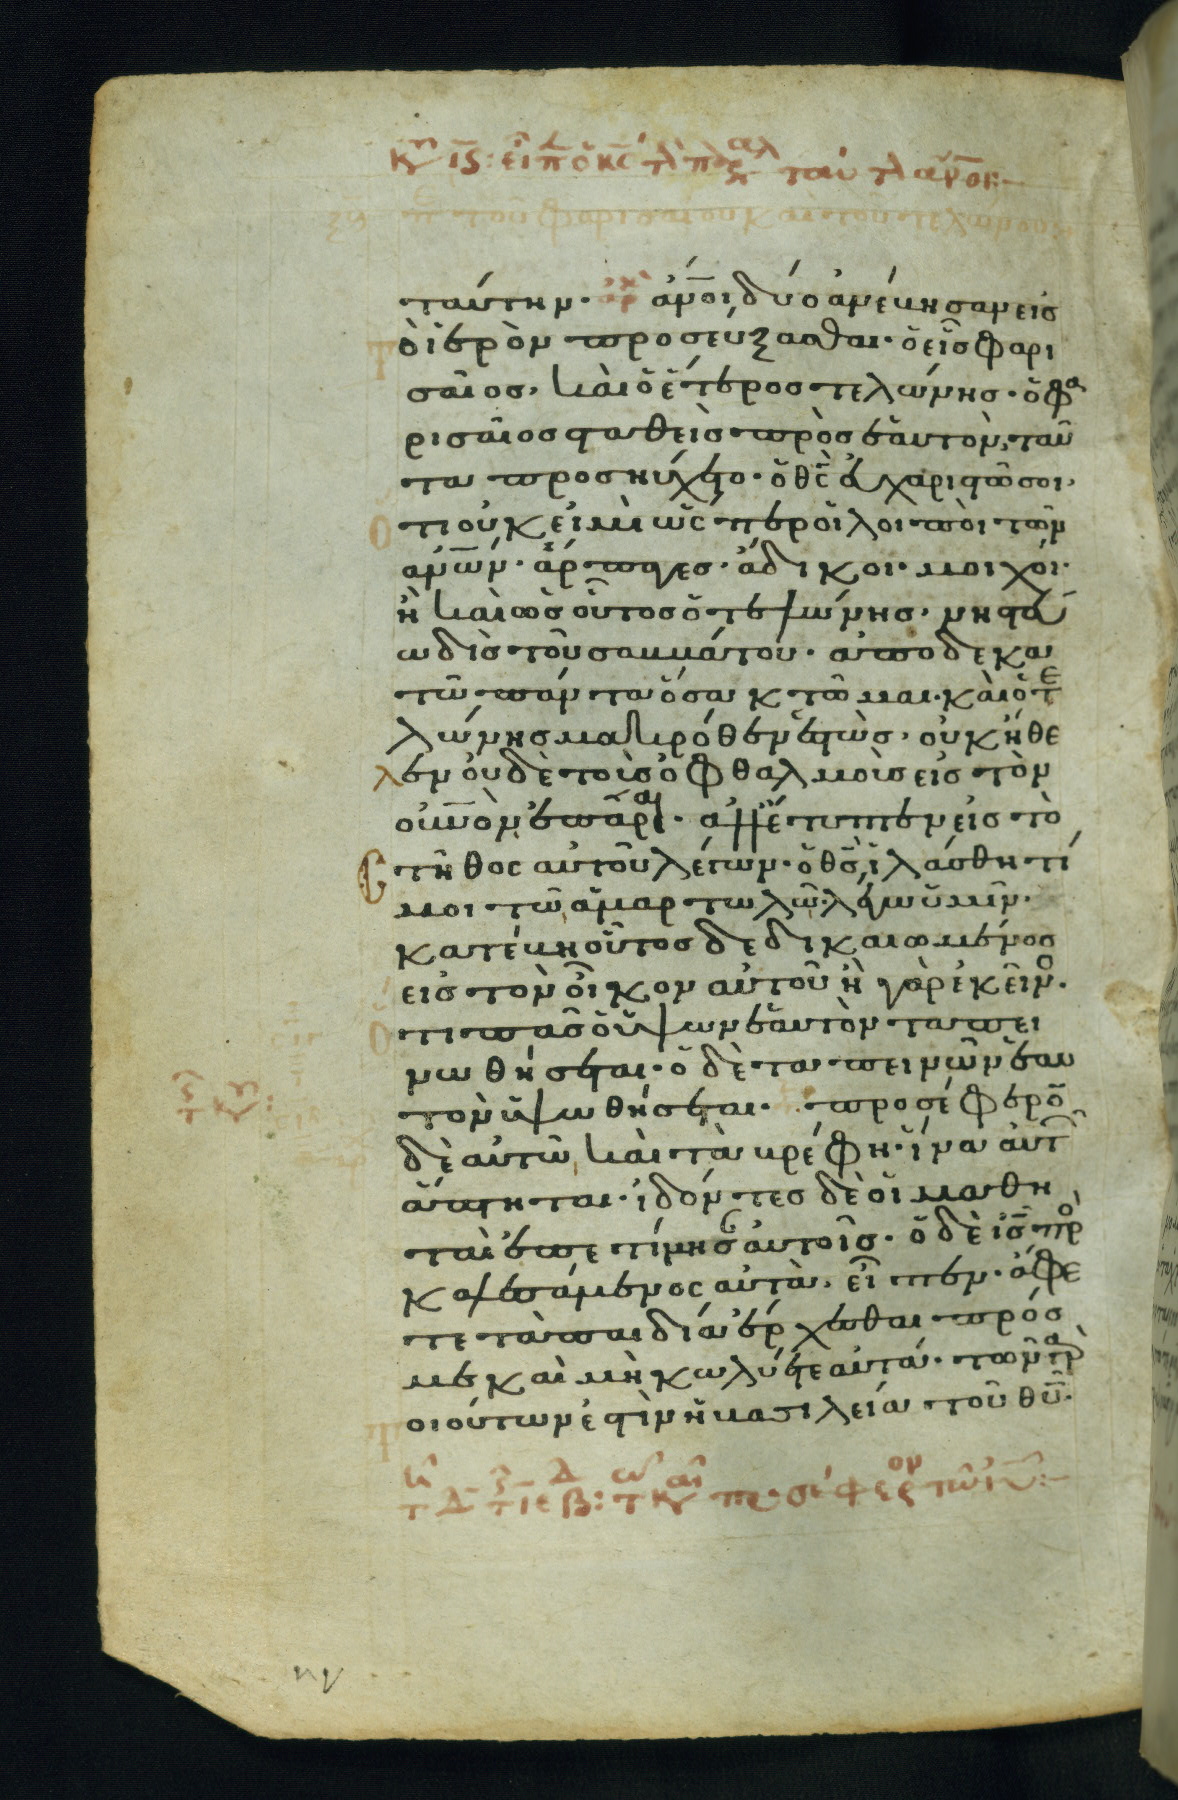 κυ ιϛ: εἶπ ὁ κς τ π ταύτ
πε τοῦ φαρισαίου καὶ τοῦ τελώνου:
ταύτην· ἀρχ ἄνοι δύο ἀνέβησαν εἰς
ὸ ἱερὸν προσεύξασθαι· ὁ εἷς φαρι
σαῖος, καὶ ὁ ἕτερος τελώνης· ὁ φα
ρισαῖος σταθεὶς πρὸς ἑαυτὸν, ταῦ
τα προσηύχετο· ὁ θς εὐχαριστῶ σοι,
τι οὐκ εἰμὶ ὥσπερ οἱ λοιποὶ τῶν
ἀνων· ἅρπαγες· ἄδικοι· μοιχοί·
ἢ καὶ ὡς οὗτος ὁ τελώνης· νηστεύ
ω δὶς τοῦ σαββάτου· ἀποδεκα
τῶ πάντα ὅσα κτῶμαι· καὶ ὁ τε
λώνης μακρόθεν ἑστὼς, οὐκ ἤθε
λεν οὐδὲ τοὺς ὀφθαλμοὺς εἰς τὸν
οὐνὸν ἐπᾶραι· ἀλλ' ἔτυπτεν εἰς τὸ
στῆθος αὐτοῦ λέγων· ὁ θς, ἱλάσθητί
μοι τῶ ἁμαρτωλῶ· λέγω ὑμῖν·
κατέβη οὗτος δεδικαιωμένος
εἰς τὸν οἶκον αὐτοῦ ἢ γὰρ ἐκεῖνο·
τι πᾶς ὁ ὑψῶν ἑαυτὸν ταπει
νωθήσεται· ὁ δὲ ταπεινῶν ἑαυ
τὸν ὑψωθήσεται· προσέφερο
δὲ αὐτῶ καὶ τὰ βρέφη· ἵνα αὐτ
ἅπτηται· ἰδόντες δὲ οἱ μαθη
ταὶ ἐπετίμησ αὐτοῖς· ὁ δὲ ις προ
καλεσάμενος αὐτὰ, εἶπεν· ἄφε
τε τὰ παιδία ἔρχεσθαι πρός
με καὶ μὴ κωλύετε αὐτά· τῶν γὰρ
οιούτων ἐστὶν ἡ βασιλεία τοῦ θυ·
τ κυ:
τ Δ τ ιε β: τ κυ προσέφερον τῶ ιυ: